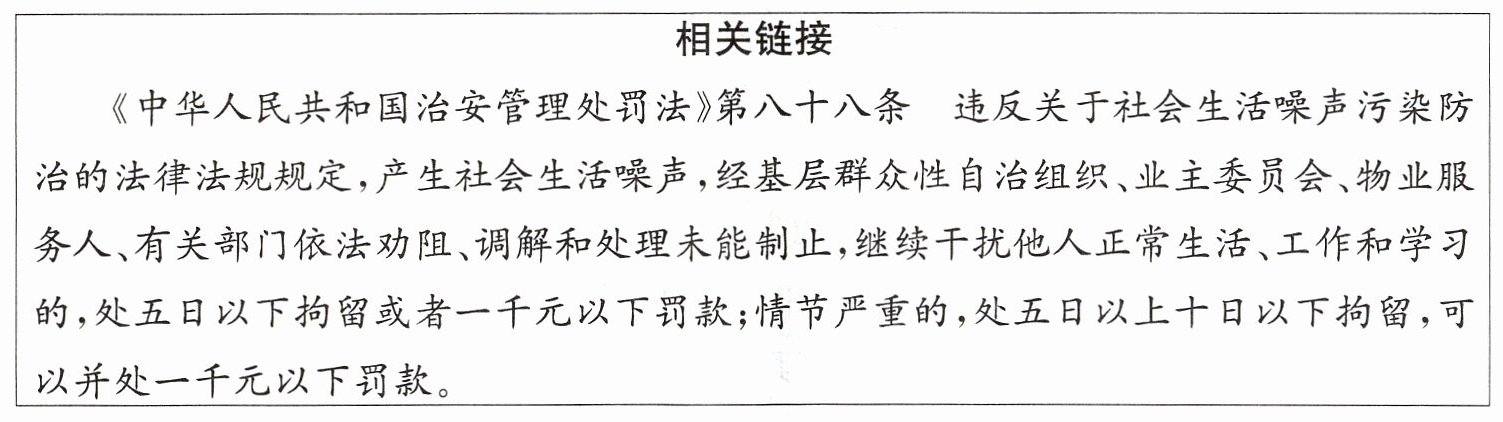 相关链接
《中华人民共和国治安管理处罚法》第八十八条　违反关于社会生活噪声污染防
治的法律法规规定,产生社会生活噪声,经基层群众性自治组织、业主委员会、物业服
务人、有关部门依法劝阻、调解和处理未能制止,继续干扰他人正常生活、工作和学习
的,处五日以下拘留或者一千元以下罚款;情节严重的,处五日以上十日以下拘留,可
以并处一千元以下罚款。